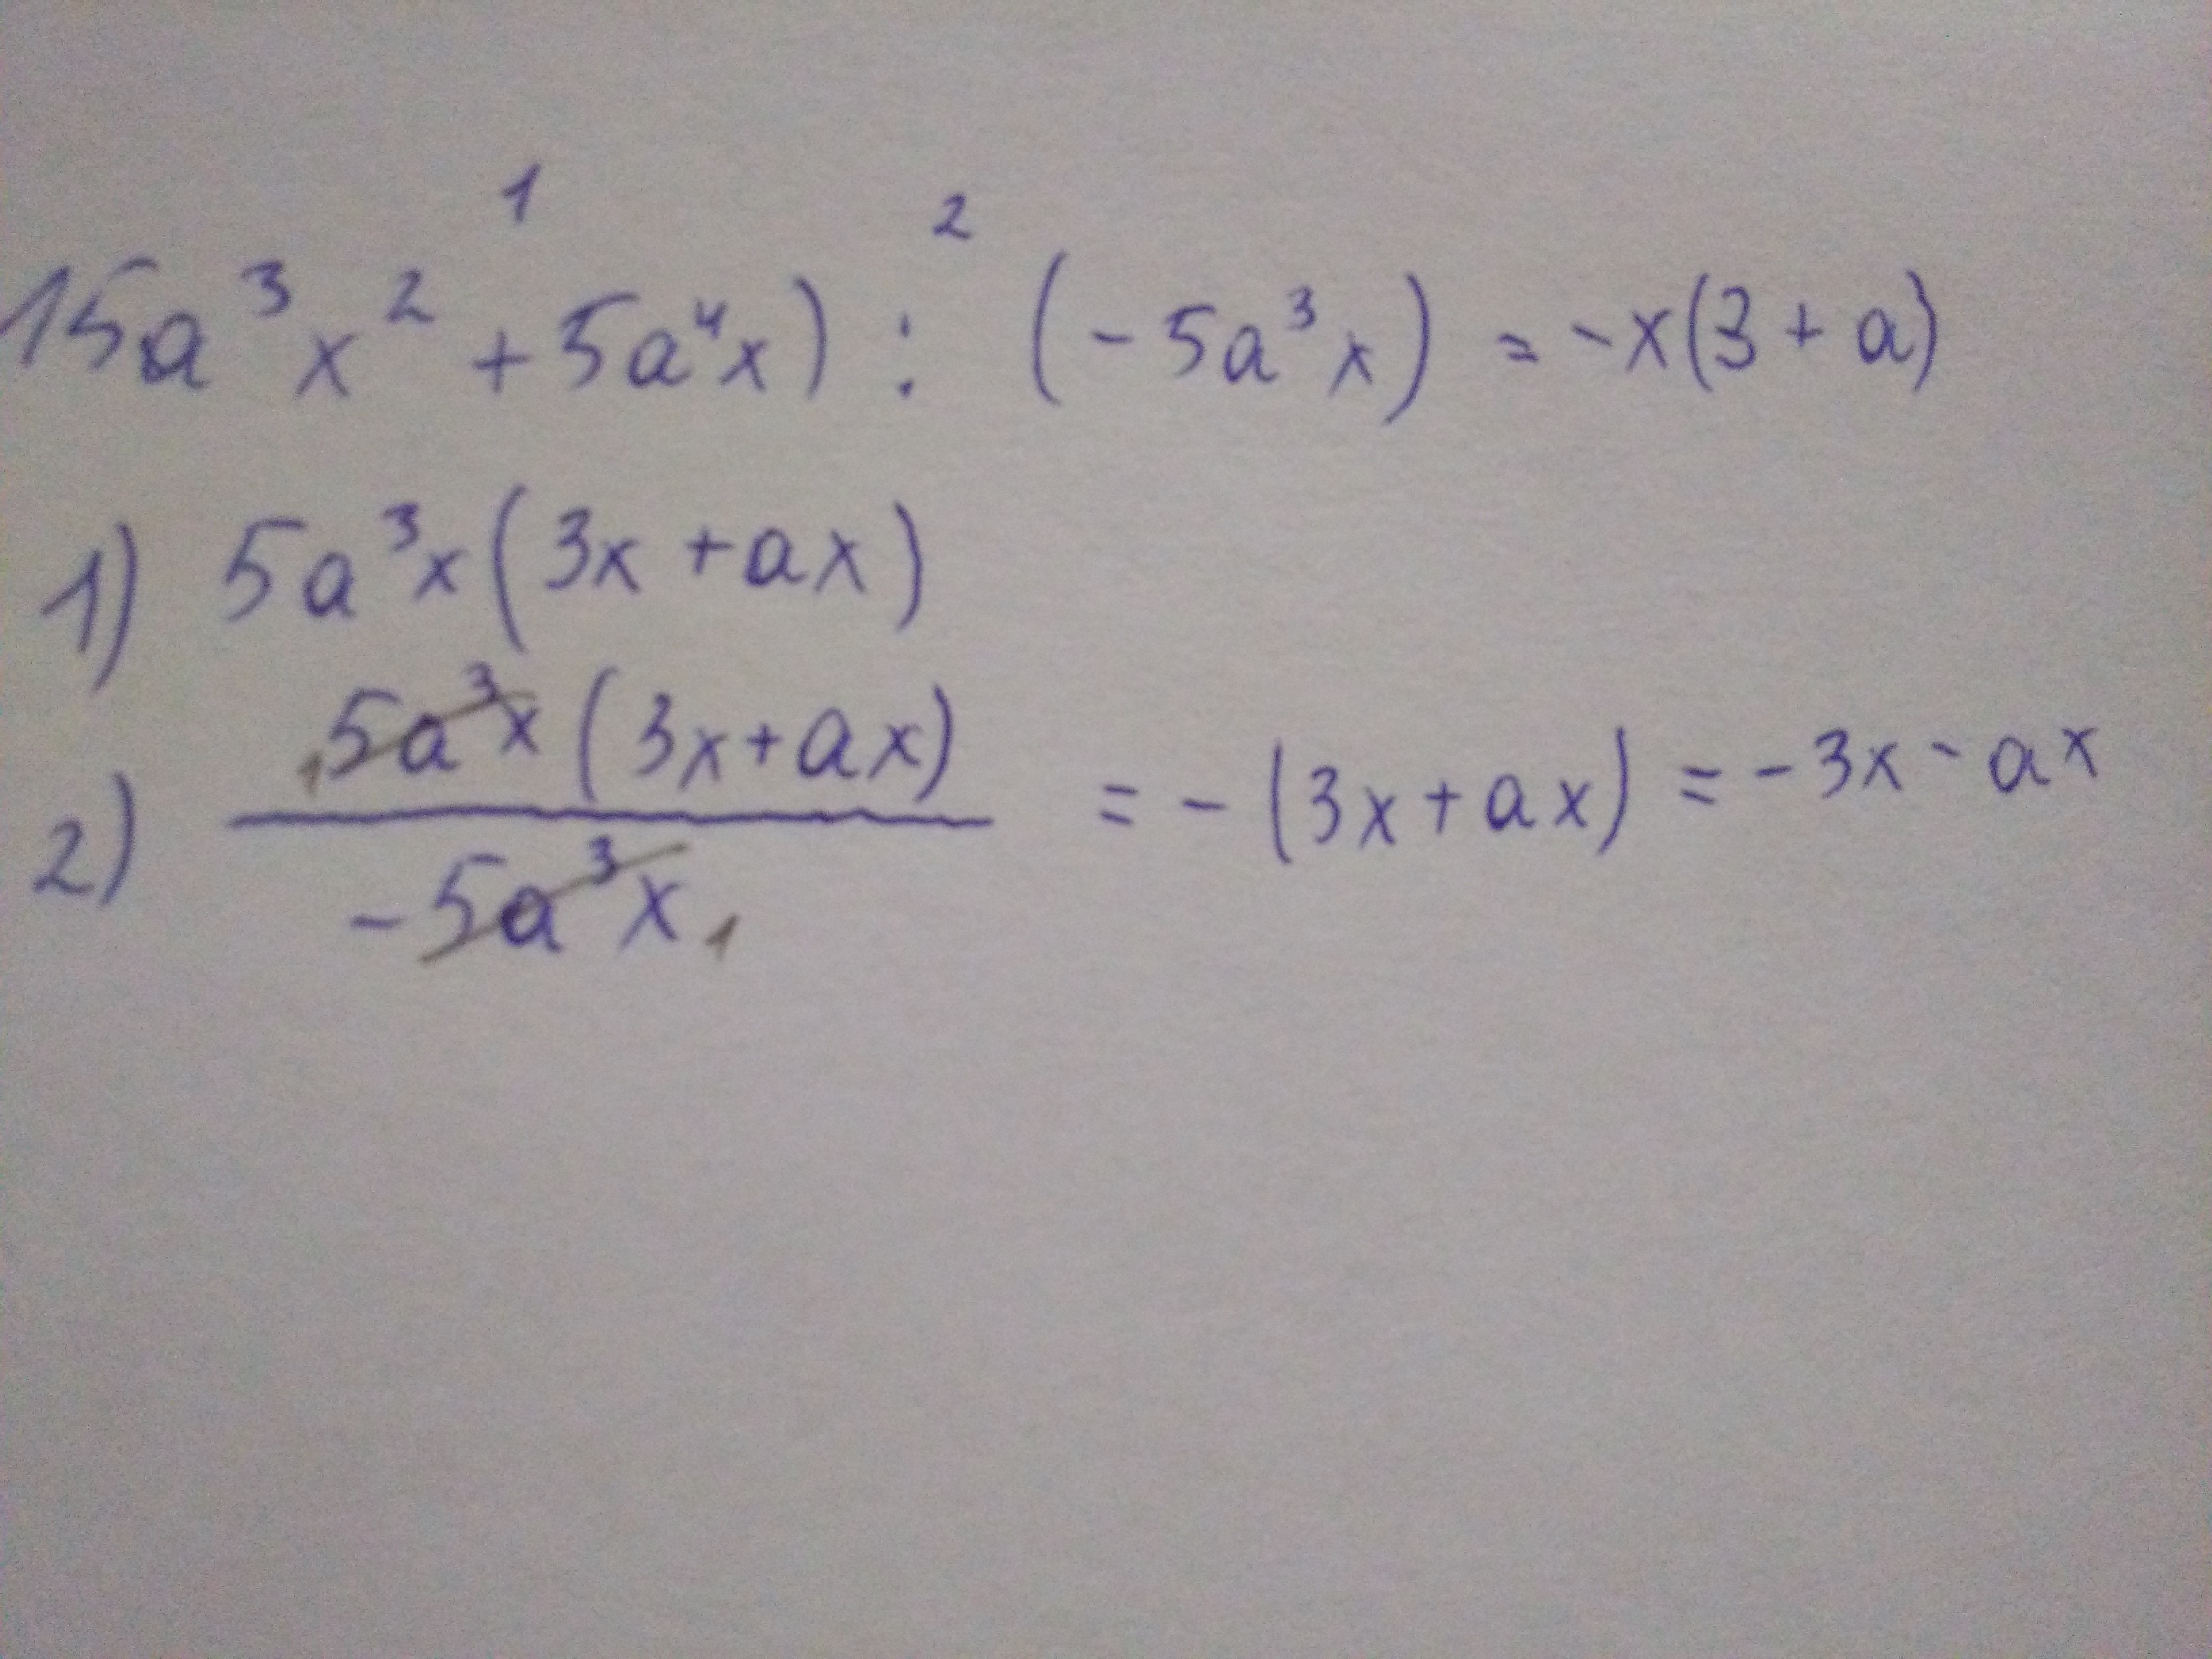 1 2
15a³x² + 5a⁴x) : (-5a³x) = -x(3 + a)
1) 5a³x(3x + ax)
2) 15a³x(3x+ax) / -5a³x1 = -(3x+ax) = -3x - ax